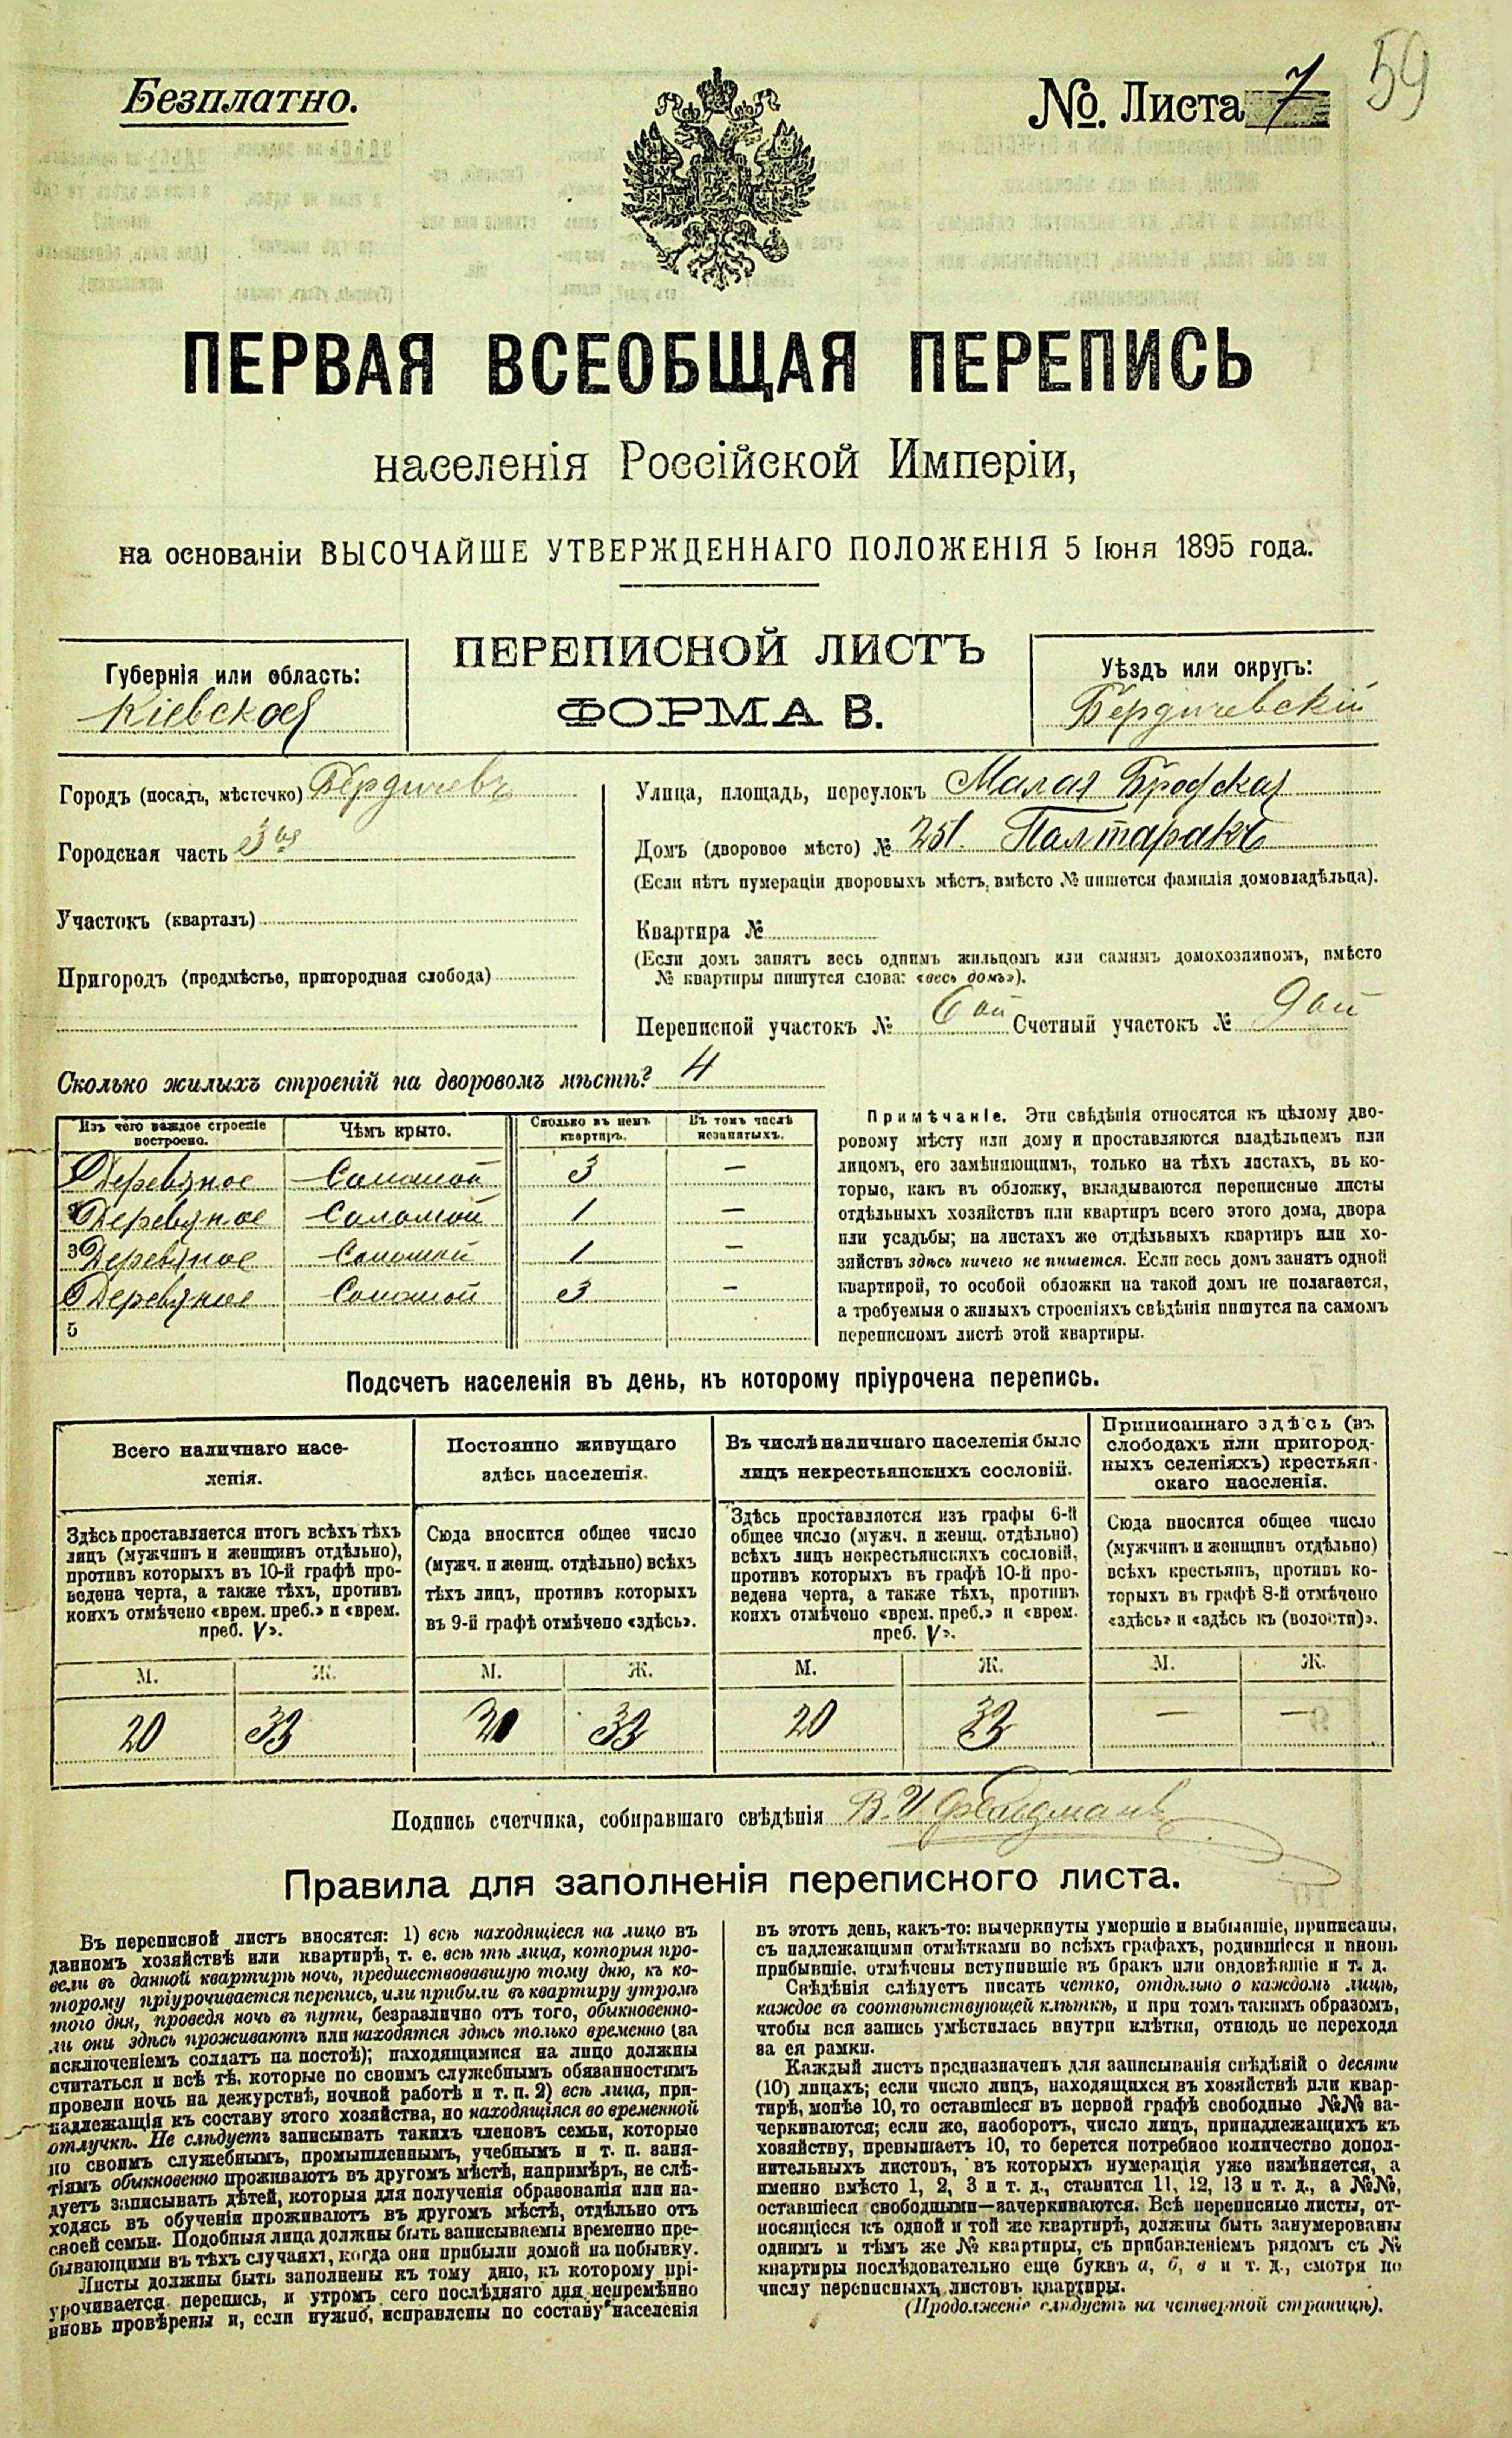 Безплатно.
№. Листа 7
59
ПЕРВАЯ ВСЕОБЩАЯ ПЕРЕПИСЬ
населенія Россійской Имперіи,
на основаніи ВЫСОЧАЙШЕ УТВЕРЖДЕННАГО ПОЛОЖЕНІЯ 5 Іюня 1895 года.
Губернія или область:
Кіевская
ПЕРЕПИСНОЙ ЛИСТЪ
ФОРМА В.
Уѣздъ или округъ:
Бердичевскій
Городъ (посадъ, мѣстечко) Бердичевъ
Городская часть 3ья
Участокъ (кварталъ)
Пригородъ (предмѣстье, пригородная слобода)
Улица, площадь, переулокъ Малая Бродская
Домъ (дворовое мѣсто) № 251. Палтаракъ
(Если нѣтъ нумераціи дворовыхъ мѣстъ, вмѣсто № пишется фамилія домовладѣльца).
Квартира №
(Если домъ занятъ весь однимъ жильцомъ или самимъ домохозяиномъ, вмѣсто
№ квартиры пишутся слова: «весь домъ»).
Переписной участокъ № 6ой Счетный участокъ № 9ой
Сколько жилыхъ строеній на дворовомъ мѣстѣ? 4
Изъ чего каждое строеніе построено.
Чѣмъ крыто.
Сколько въ немъ квартиръ.
Въ томъ числѣ незанятыхъ.
1 Деревяное Соломой 3 —
2 Деревяное Соломой 1 —
3 Деревяное Соломой 1 —
4 Деревяное Соломой 3 —
5
Примѣчаніе. Эти свѣдѣнія относятся къ цѣлому дво-
ровому мѣсту или дому и проставляются владѣльцемъ или
лицомъ, его замѣняющимъ, только на тѣхъ листахъ, въ ко-
торые, какъ въ обложку, вкладываются переписные листы
отдѣльныхъ хозяйствъ или квартиръ всего этого дома, двора
или усадьбы; на листахъ же отдѣльныхъ квартиръ или хо-
зяйствъ здѣсь ничего не пишется. Если весь домъ занятъ одной
квартирой, то особой обложки на такой домъ не полагается,
а требуемыя о жилыхъ строеніяхъ свѣдѣнія пишутся на самомъ
переписномъ листѣ этой квартиры.
Подсчетъ населенія въ день, къ которому пріурочена перепись.
Всего наличнаго насе-
ленія.
Здѣсь проставляется итогъ всѣхъ тѣхъ
лицъ (мужчинъ и женщинъ отдѣльно),
противъ которыхъ въ 10-й графѣ про-
ведена черта, а также тѣхъ, противъ
коихъ отмѣчено «врем. преб.» и «врем.
преб. V».
М. Ж.
20 33
Постоянно живущаго
здѣсь населенія.
Сюда вносится общее число
(мужч. и женщ. отдѣльно) всѣхъ
тѣхъ лицъ, противъ которыхъ
въ 9-й графѣ отмѣчено «здѣсь».
М. Ж.
20 33
Въ числѣ наличнаго населенія было
лицъ некрестьянскихъ сословій.
Здѣсь проставляется изъ графы 6-й
общее число (мужч. и женщ. отдѣльно)
всѣхъ лицъ некрестьянскихъ сословій,
противъ которыхъ въ графѣ 10-й про-
ведена черта, а также тѣхъ, противъ
коихъ отмѣчено «врем. преб.» и «врем.
преб. V».
М. Ж.
20 33
Приписаннаго здѣсь (въ
слободахъ или пригород-
ныхъ селеніяхъ) крестьян-
скаго населенія.
Сюда вносится общее число
(мужчинъ и женщинъ отдѣльно)
всѣхъ крестьянъ, противъ ко-
торыхъ въ графѣ 8-й отмѣчено
«здѣсь» и «здѣсь къ (волости)».
М. Ж.
— —
Подпись счетчика, собиравшаго свѣдѣнія В. И. Фельдманъ
Правила для заполненія переписного листа.
Въ переписной листъ вносятся: 1) всѣ находящіеся на лицо въ
данномъ хозяйствѣ или квартирѣ, т. е. всѣ тѣ лица, которыя про-
вели въ данной квартирѣ ночь, предшествовавшую тому дню, къ ко-
торому пріурочивается перепись, или прибыли въ квартиру утромъ
того дня, проведя ночь въ пути, безразлично отъ того, обыкновенно-
ли они здѣсь проживаютъ или находятся здѣсь только временно (за
исключеніемъ солдатъ на постоѣ); находящимися на лицо должны
считаться и всѣ тѣ, которые по своимъ служебнымъ обязанностямъ
провели ночь на дежурствѣ, ночной работѣ и т. п. 2) всѣ лица, при-
надлежащія къ составу этого хозяйства, но находящіяся во временной
отлучкѣ. Не слѣдуетъ записывать такихъ членовъ семьи, которые
по своимъ служебнымъ, промышленнымъ, учебнымъ и т. п. заня-
тіямъ обыкновенно проживаютъ въ другомъ мѣстѣ, напримѣръ, не слѣ-
дуетъ записывать дѣтей, которыя для полученія образованія или на-
ходясь въ обученіи проживаютъ въ другомъ мѣстѣ, отдѣльно отъ
своей семьи. Подобныя лица должны быть записываемы временно пре-
бывающими въ тѣхъ случаяхъ, когда они прибыли домой на побывку.
Листы должны быть заполнены къ тому дню, къ которому прі-
урочивается перепись, и утромъ сего послѣдняго дня непремѣнно
вновь провѣрены и, если нужно, исправлены по составу населенія
въ этотъ день, какъ-то: вычеркнуты умершіе и выбывшіе, приписаны,
съ надлежащими отмѣтками во всѣхъ графахъ, родившіеся и вновь
прибывшіе, отмѣчены вступившіе въ бракъ или овдовѣвшіе и т. д.
Свѣдѣнія слѣдуетъ писать четко, отдѣльно о каждомъ лицѣ,
каждое въ соотвѣтствующей клѣткѣ, и при томъ такимъ образомъ,
чтобы вся запись умѣстилась внутри клѣтки, отнюдь не переходя
за ея рамки.
Каждый листъ предназначенъ для записыванія свѣдѣній о десяти
(10) лицахъ; если число лицъ, находящихся въ хозяйствѣ или квар-
тирѣ, менѣе 10, то оставшіеся въ первой графѣ свободные №№ за-
черкиваются; если же, наоборотъ, число лицъ, принадлежащихъ къ
хозяйству, превышаетъ 10, то берется потребное количество допол-
нительныхъ листовъ, въ которыхъ нумерація уже измѣняется, а
именно вмѣсто 1, 2, 3 и т. д., ставится 11, 12, 13 и т. д., а №№,
оставшіеся свободными—зачеркиваются. Всѣ переписные листы, от-
носящіеся къ одной и той же квартирѣ, должны быть занумерованы
однимъ и тѣмъ же № квартиры, съ прибавленіемъ рядомъ съ №
квартиры послѣдовательно еще буквъ а, б, в и т. д., смотря по
числу переписныхъ листовъ квартиры.
(Продолженіе слѣдуетъ на четвертой страницѣ).